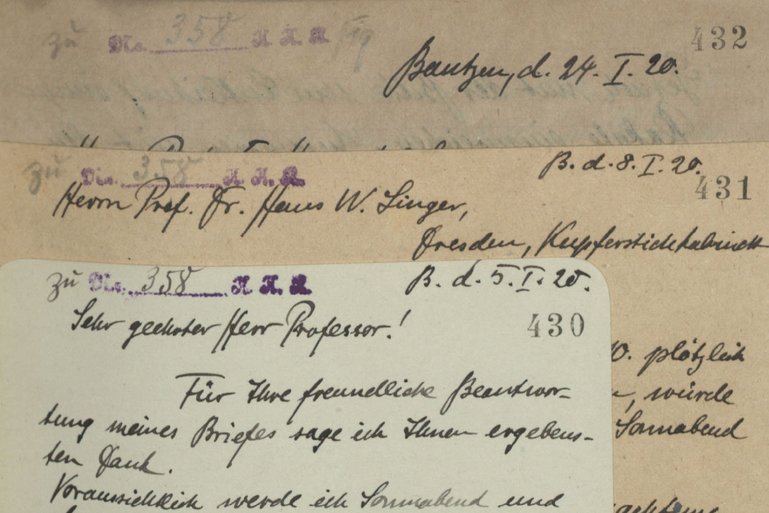 zu No. 358 K. K. K.
432
Bautzen, d. 24. I. 20.
zu No. 358 K. K. K.
B. d. 8. I. 20.
431
Herrn Prof. Dr. Hans W. Singer,
Dresden, Kupferstichkabinett
10. plötzlich
würde
Sonnabend
zu No. 358 K. K. K.
B. d. 5. I. 20.
Sehr geehrter Herr Professor!
430
Für Ihre freundliche Beantwor-
tung meines Briefes sage ich Ihnen ergebens-
ten Dank.
Voraussichtlich werde ich Sonnabend und